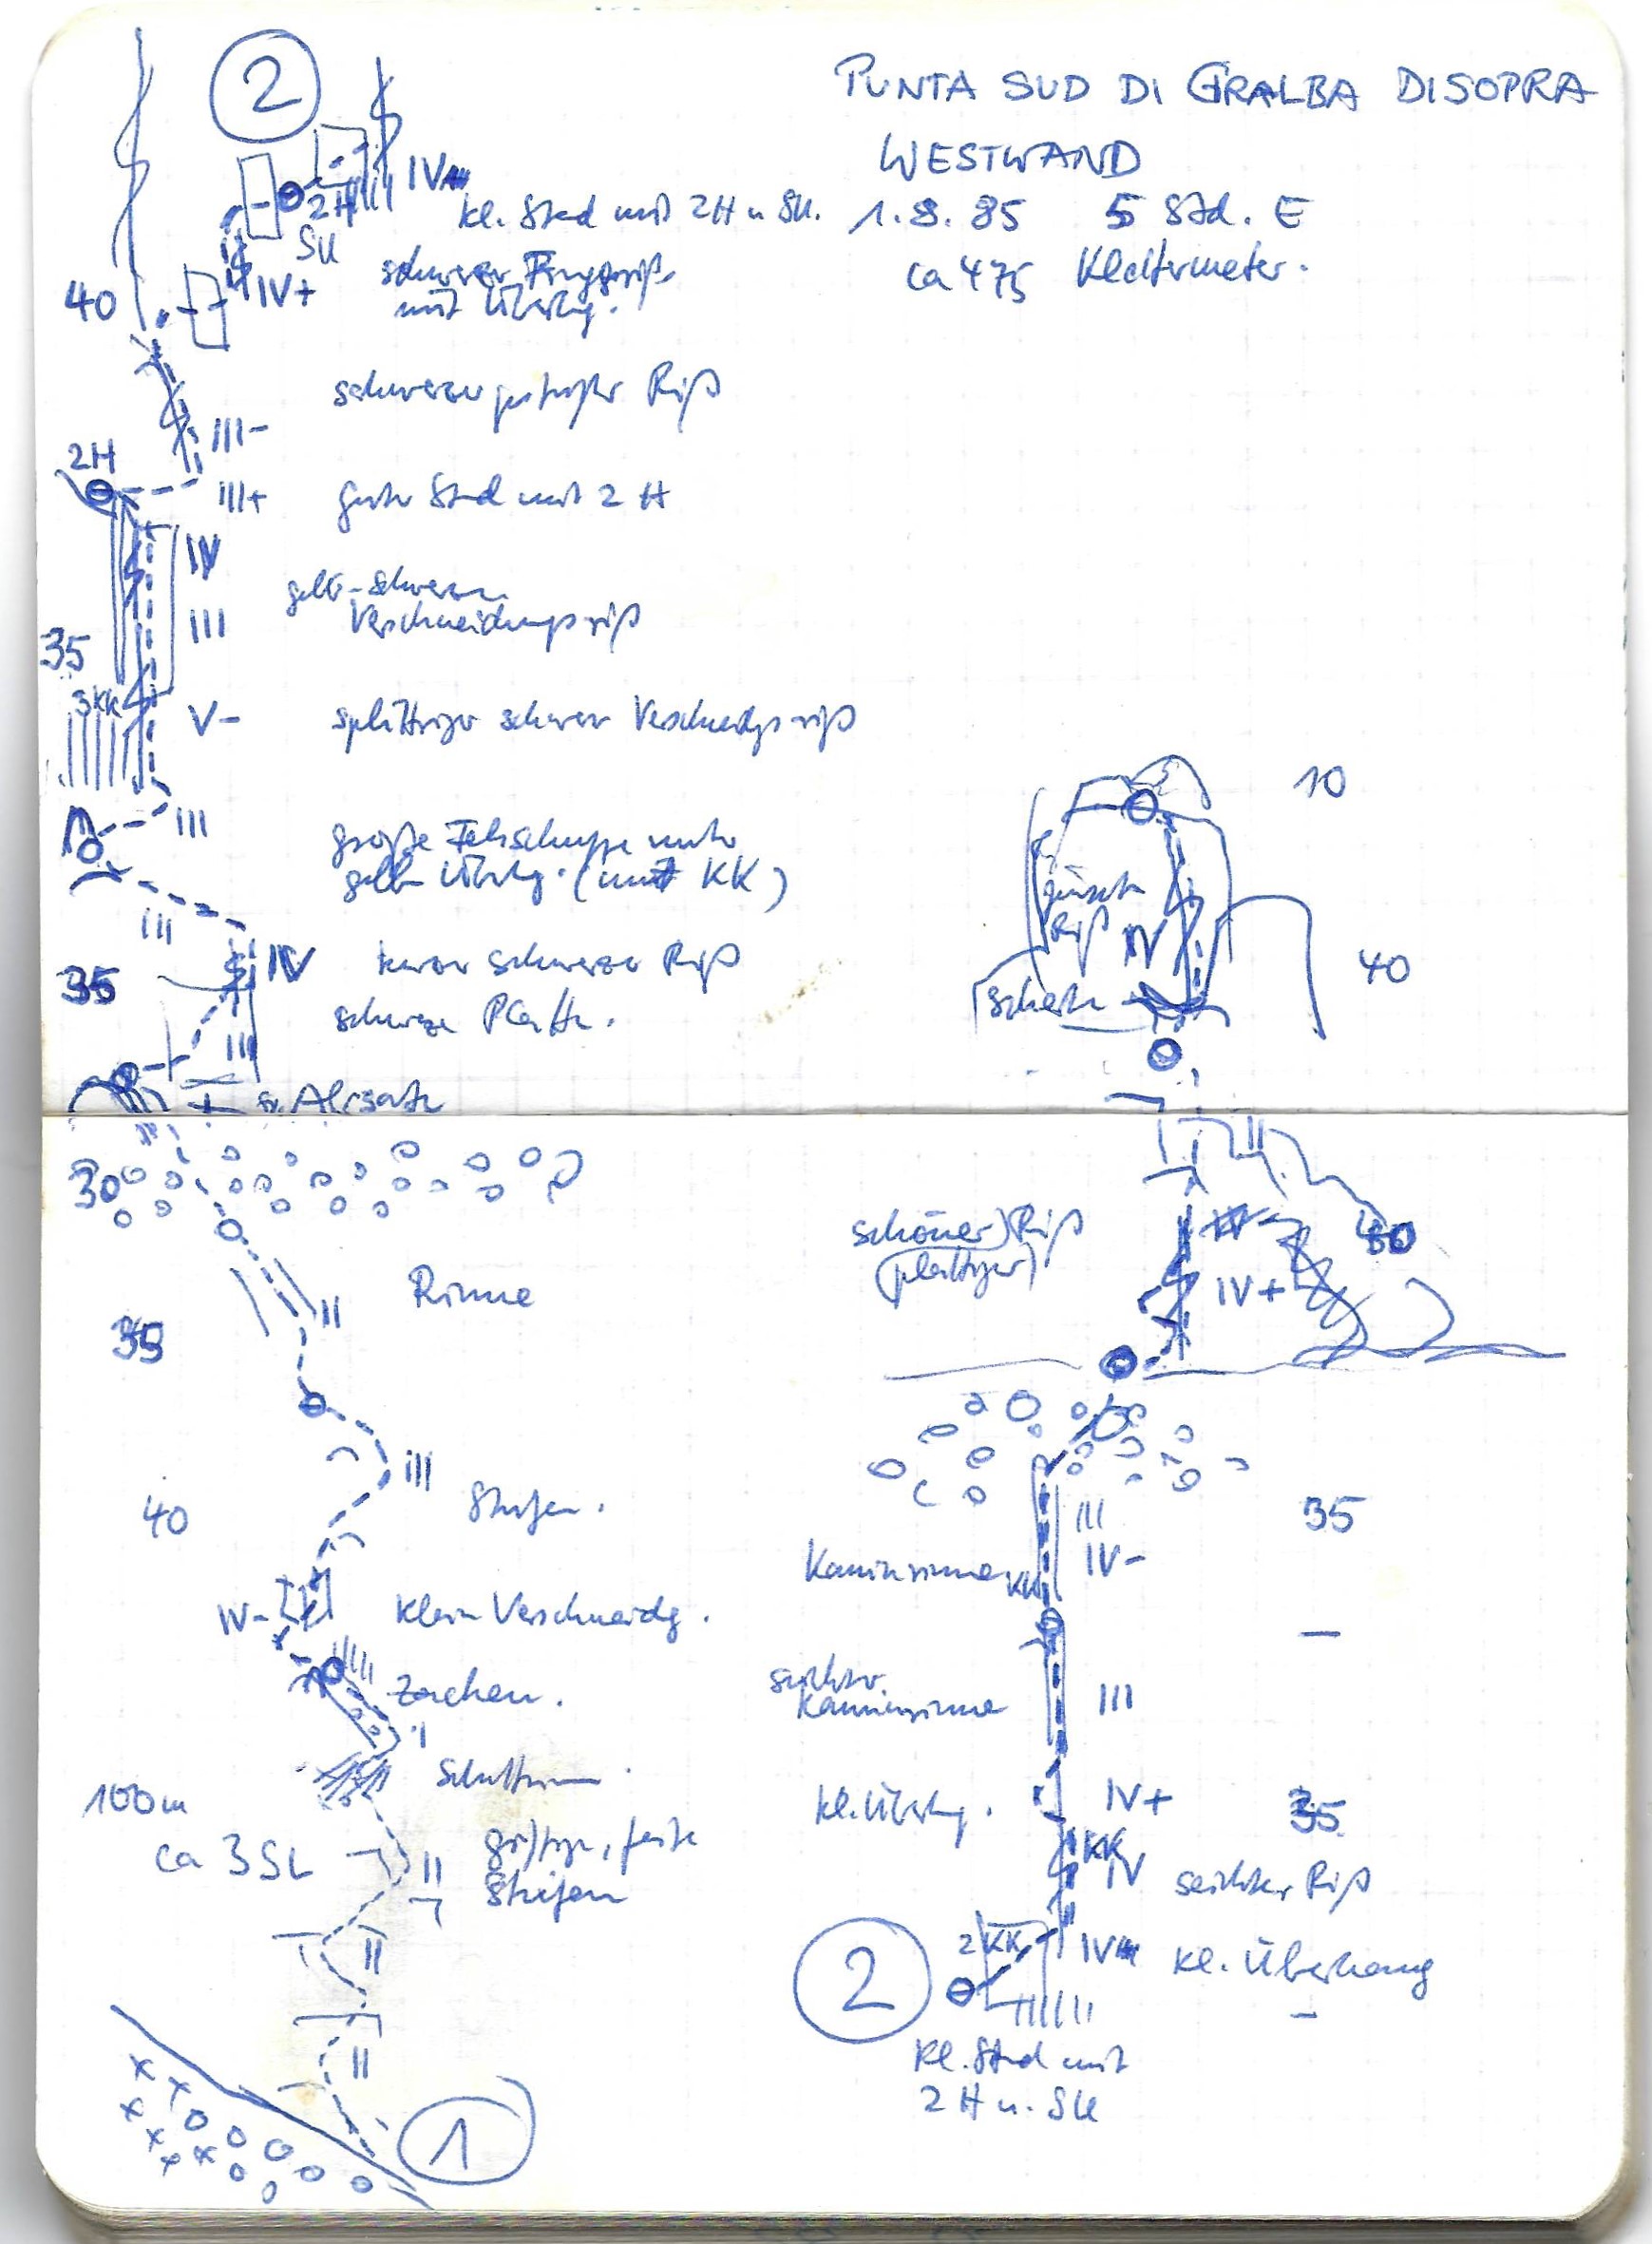 2
PUNTA SUD DI GRALBA DISOPRA
WESTWAND
IV
kl. Stand mit 2H u. SU.
1.8.85 5 Std. E
ca 475 Klettermeter.
2H
SU
40
IV+
schwarzer
mit Überhg.
schwarzer Riß
III-
2H
III+
guter Stand mit 2 H
IV
gelb-schwarzer
Verschneidungsriß
III
35
3KK
V-
splittriger schwarzer Verschneidgsriß
III
große Felsschuppe unter
gelbem Überhg. (mit KK)
III
IV
kurzer schwarzer Riß
35
schwarze Platte.
III
30
Rinne
II
35
III
40
Stufen.
IV-
kleine Verschneidg.
Zacken.
I
Schuttrinne.
100m
ca 3 SL
II
feste
Stufen
II
II
1
10
Riß
IV
40
Scharte
II
schöner) Riß
(plattiger)
40
IV+
III
35
IV-
Kaminrinne
KK
seichte
Kaminrinne
III
kl. Überhg.
IV+
35
KK
IV
seichter Riß
2 KK
IV
kl. Überhang
2
kl. Stand mit
2 H u. SU